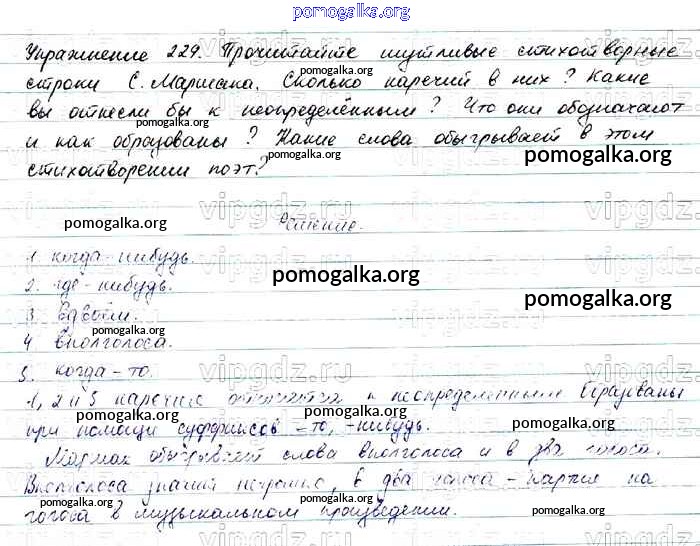 pomogalka.org
Упражнение 229. Прочитайте шутливые стихотворные
строки С. Маршака. Сколько наречий в них? Какие
вы отнесли бы к неопределённым? Что они обозначают
и как образованы? Какие слова обыгрывает в этом
стихотворении поэт?
Решение.
1. когда-нибудь.
2. где-нибудь.
3. Вдвоём.
4 вполголоса.
5. когда-то.
1, 2 и 5 наречие относятся к неопределенным образованы
при помощи суффиксов -то, -нибудь.
Маршак обыгрывает слова вполголоса и в два голоса.
Вполголоса значит негромко, в два голоса - партия на
голоса в музыкальном произведении.
pomogalka.org
pomogalka.org
pomogalka.org
pomogalka.org
pomogalka.org
pomogalka.org
pomogalka.org
pomogalka.org
pomogalka.org
pomogalka.org
pomogalka.org
pomogalka.org
pomogalka.org
vipgdz.ru
vipgdz.ru
vipgdz.ru